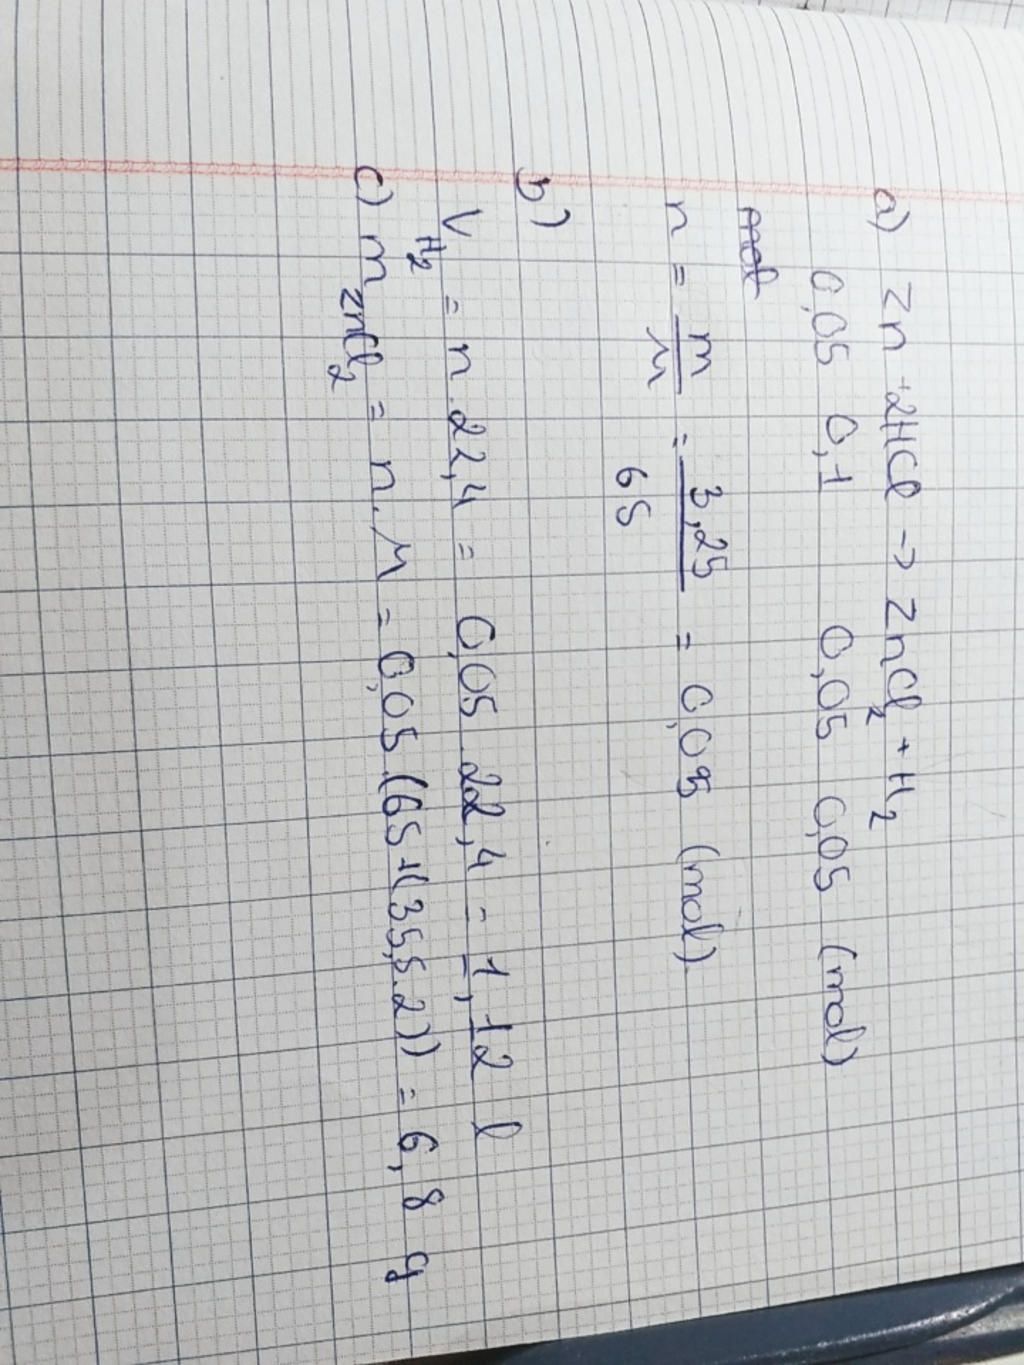 a) Zn + 2HCl → ZnCl₂ + H₂
0,05 0,1 0,05 0,05 (mol)
n = m/M = 3,25/65 = 0,05 (mol)
b)
V H₂ = n . 22,4 = 0,05 . 22,4 = 1,12 l
c) m ZnCl₂ = n . M = 0,05 . (65+(35,5.2)) = 6,8 g